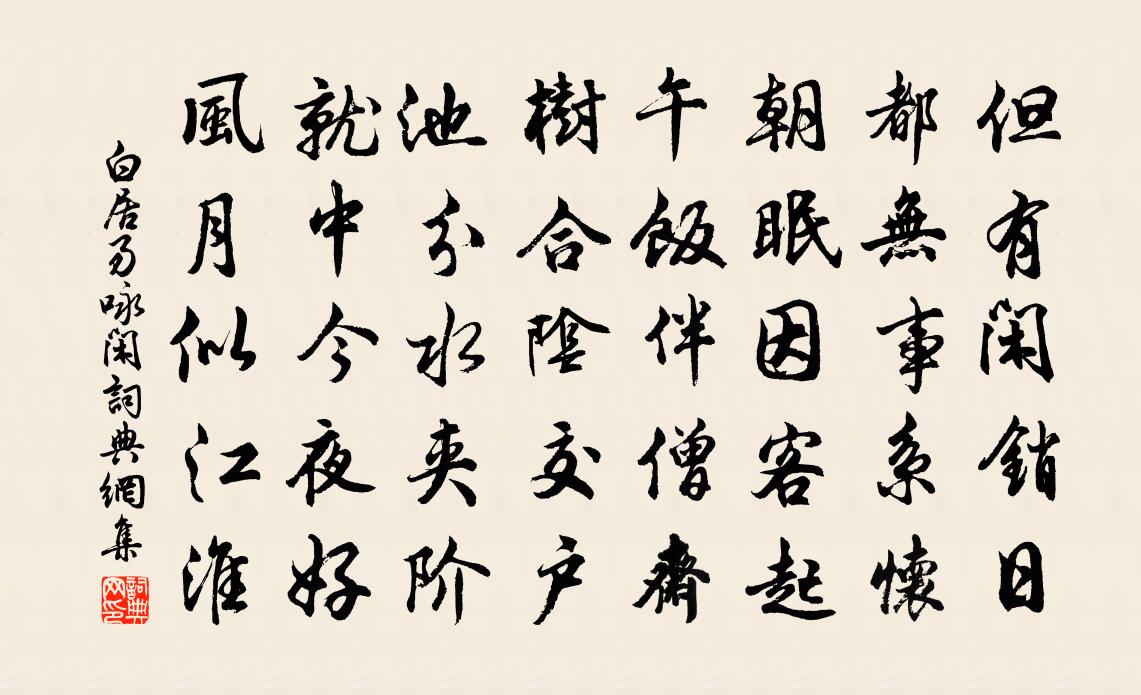 但有闲銷日
都無事系懷
朝眠因客起
午飯伴僧齋
樹合陰交户
池分水夾阶
就中今夜好
風月似江淮
白居易咏闲詞典網集
詞典網印